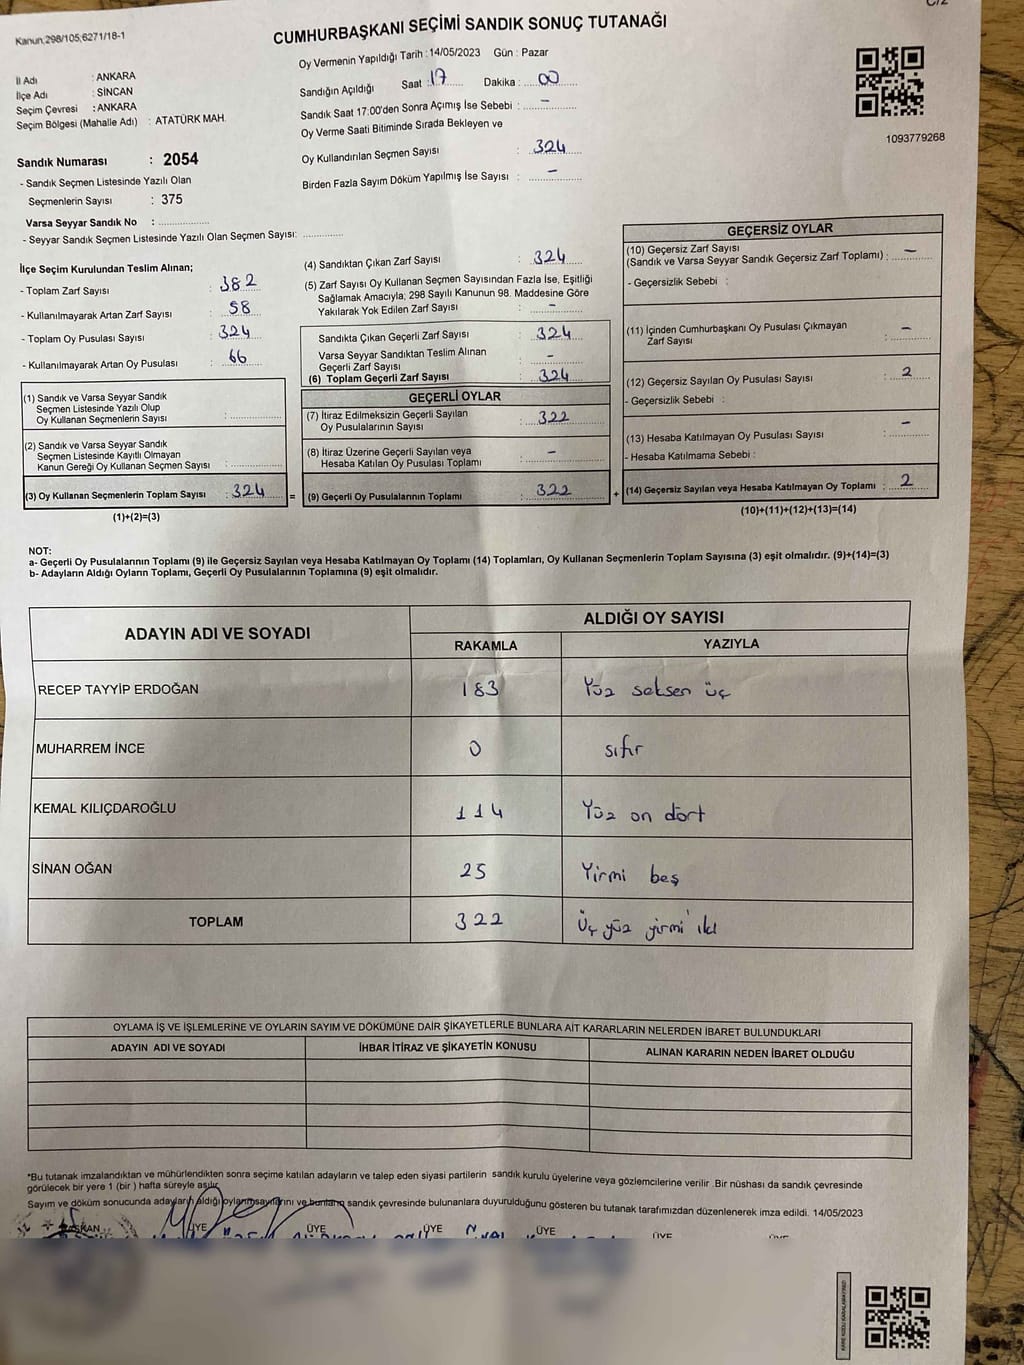 C/2
Kanun;298/105;6271/18-1
CUMHURBAŞKANI SEÇİMİ SANDIK SONUÇ TUTANAĞI
Oy Vermenin Yapıldığı Tarih : 14/05/2023 Gün : Pazar
İl Adı : ANKARA
İlçe Adı : SİNCAN
Seçim Çevresi : ANKARA
Seçim Bölgesi (Mahalle Adı) : ATATÜRK MAH.
Sandık Numarası : 2054
- Sandık Seçmen Listesinde Yazılı Olan
Seçmenlerin Sayısı : 375
Varsa Seyyar Sandık No : ....................
- Seyyar Sandık Seçmen Listesinde Yazılı Olan Seçmen Sayısı: ................
Sandığın Açıldığı Saat : 17 Dakika : 00
Sandık Saat 17:00'den Sonra Açımış İse Sebebi : -
Oy Verme Saati Bitiminde Sırada Bekleyen ve
Oy Kullandırılan Seçmen Sayısı : 324
Birden Fazla Sayım Döküm Yapılmış İse Sayısı : -
1093779268
İlçe Seçim Kurulundan Teslim Alınan;
- Toplam Zarf Sayısı : 382
- Kullanılmayarak Artan Zarf Sayısı : 58
- Toplam Oy Pusulası Sayısı : 324
- Kullanılmayarak Artan Oy Pusulası : 66
(1) Sandık ve Varsa Seyyar Sandık
Seçmen Listesinde Yazılı Olup
Oy Kullanan Seçmenlerin Sayısı : ................
(2) Sandık ve Varsa Seyyar Sandık
Seçmen Listesinde Kayıtlı Olmayan
Kanun Gereği Oy Kullanan Seçmen Sayısı : ................
(3) Oy Kullanan Seçmenlerin Toplam Sayısı : 324 =
(1)+(2)=(3)
(4) Sandıktan Çıkan Zarf Sayısı : 324
(5) Zarf Sayısı Oy Kullanan Seçmen Sayısından Fazla İse, Eşitliği
Sağlamak Amacıyla; 298 Sayılı Kanunun 98. Maddesine Göre
Yakılarak Yok Edilen Zarf Sayısı : -
Sandıkta Çıkan Geçerli Zarf Sayısı : 324
Varsa Seyyar Sandıktan Teslim Alınan
Geçerli Zarf Sayısı : -
(6) Toplam Geçerli Zarf Sayısı : 324
GEÇERLİ OYLAR
(7) İtiraz Edilmeksizin Geçerli Sayılan
Oy Pusulalarının Sayısı : 322
(8) İtiraz Üzerine Geçerli Sayılan ve
Hesaba Katılan Oy Pusulası Toplamı : -
(9) Geçerli Oy Pusulalarının Toplamı : 322 +
GEÇERSİZ OYLAR
(10) Geçersiz Zarf Sayısı
(Sandık ve Varsa Seyyar Sandık Geçersiz Zarf Toplamı) : -
- Geçersizlik Sebebi :
(11) İçinden Cumhurbaşkanı Oy Pusulası Çıkmayan
Zarf Sayısı : -
(12) Geçersiz Sayılan Oy Pusulası Sayısı : 2
- Geçersizlik Sebebi :
(13) Hesaba Katılmayan Oy Pusulası Sayısı : -
- Hesaba Katılmama Sebebi :
(14) Geçersiz Sayılan veya Hesaba Katılmayan Oy Toplamı : 2
(10)+(11)+(12)+(13)=(14)
NOT:
a- Geçerli Oy Pusulalarının Toplamı (9) ile Geçersiz Sayılan veya Hesaba Katılmayan Oy Toplamı (14) Toplamları, Oy Kullanan Seçmenlerin Toplam Sayısına (3) eşit olmalıdır. (9)+(14)=(3)
b- Adayların Aldığı Oyların Toplamı, Geçerli Oy Pusulalarının Toplamına (9) eşit olmalıdır.
ADAYIN ADI VE SOYADI ALDIĞI OY SAYISI
RAKAMLA YAZIYLA
RECEP TAYYİP ERDOĞAN 183 Yüz seksen üç
MUHARREM İNCE 0 sıfır
KEMAL KILIÇDAROĞLU 114 Yüz on dört
SİNAN OĞAN 25 Yirmi beş
TOPLAM 322 Üç yüz yirmi iki
OYLAMA İŞ VE İŞLEMLERİNE VE OYLARIN SAYIM VE DÖKÜMÜNE DAİR ŞİKAYETLERLE BUNLARA AİT KARARLARIN NELERDEN İBARET BULUNDUKLARI
ADAYIN ADI VE SOYADI İHBAR İTİRAZ VE ŞİKAYETİN KONUSU ALINAN KARARIN NEDEN İBARET OLDUĞU
*Bu tutanak imzalandıktan ve mühürlendikten sonra seçime katılan adayların ve talep eden siyasi partilerin sandık kurulu üyelerine veya gözlemcilerine verilir. Bir nüshası da sandık çevresinde
görülecek bir yere 1 (bir ) hafta süreyle asılır.
Sayım ve döküm sonucunda adayların aldığı oyların sayılarını ve bunların sandık çevresinde bulunanlara duyurulduğunu gösteren bu tutanak tarafımızdan düzenlenerek imza edildi. 14/05/2023
BAŞKAN ÜYE ÜYE ÜYE ÜYE ÜYE ÜYE